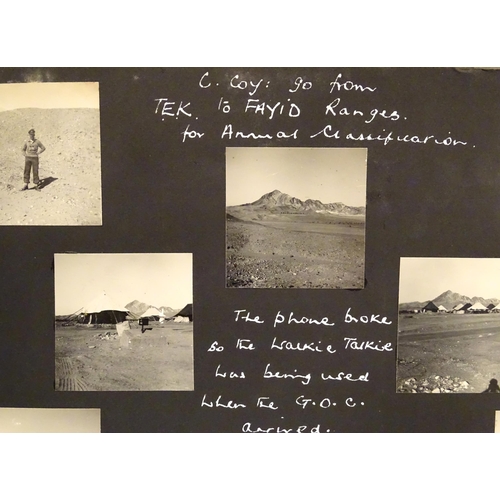 C. Coy: go from
T.E.K. to FAYID Ranges.
for Annual Classification.
The phone broke
so the Walkie Talkie
was being used
when the G.O.C.
arrived.